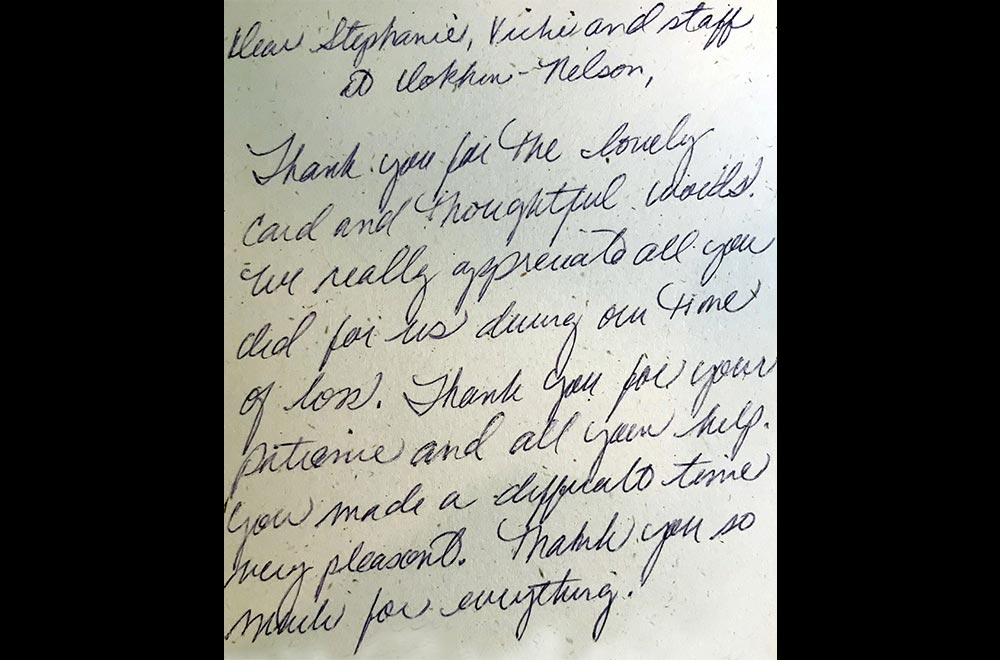 Dear Stephanie, Vickie and staff
at Dokken-Nelson,
Thank you for the lovely
card and thoughtful words.
We really appreciate all you
did for us during our time
of loss. Thank you for your
patience and all your help.
You made a difficult time
very pleasant. Thank you so
much for everything.